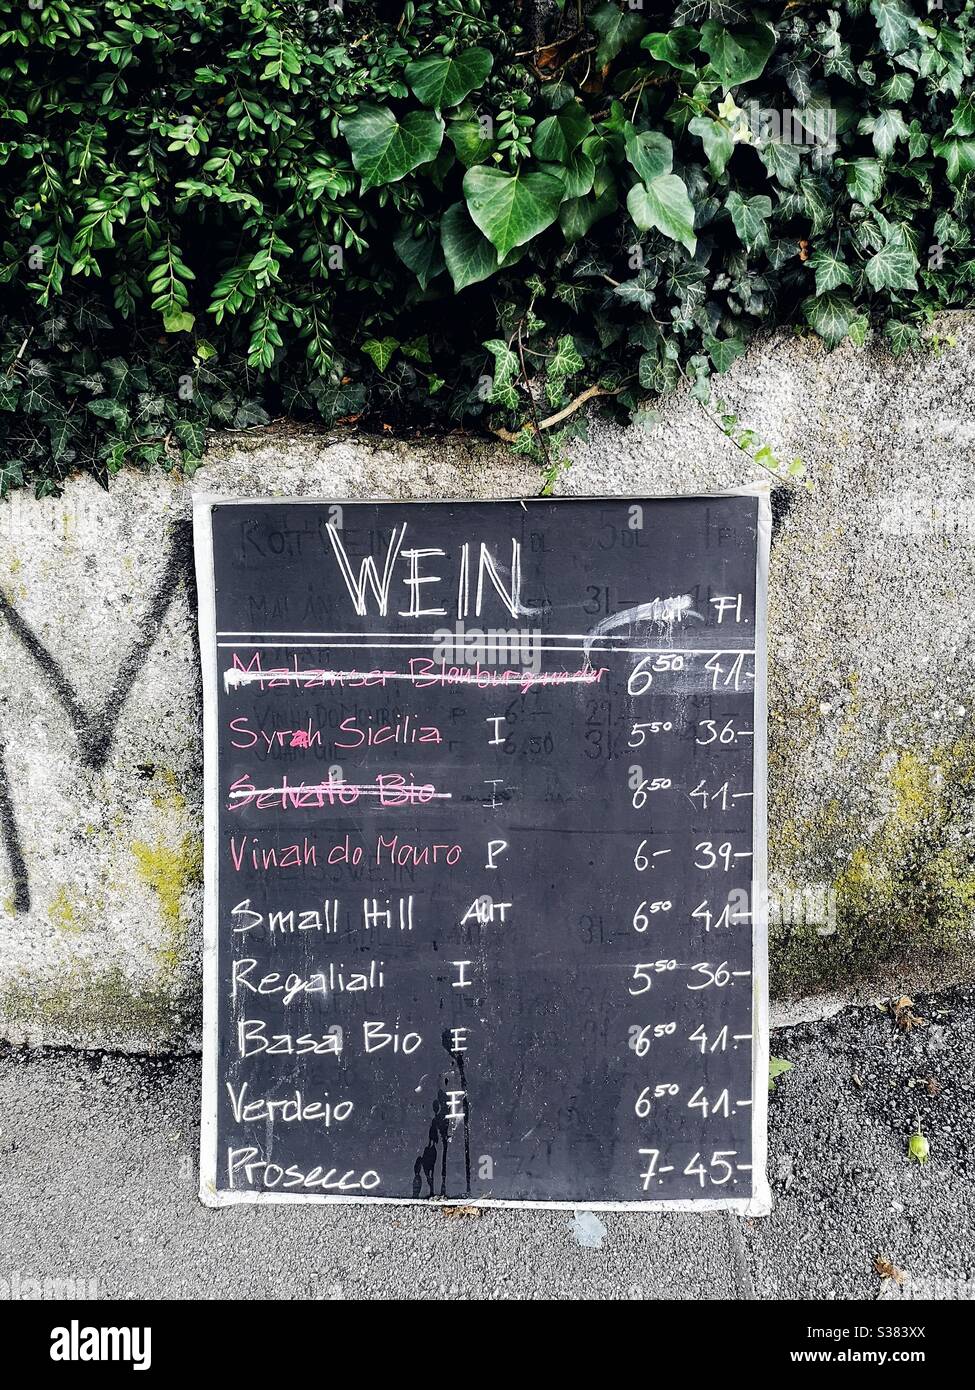 WEIN
Fl.
Malanser Blauburgunder 6 50 41.-
Syrah Sicilia I 5 50 36.-
Selvato Bio I 6 50 41.-
Vinah do Mouro P 6.- 39.-
Small Hill AUT 6 50 41.-
Regaliali I 5 50 36.-
Basa Bio E 6 50 41.-
Verdejo E 6 50 41.-
Prosecco 7.- 45.-
alamy
Image ID: S383XX
www.alamy.com